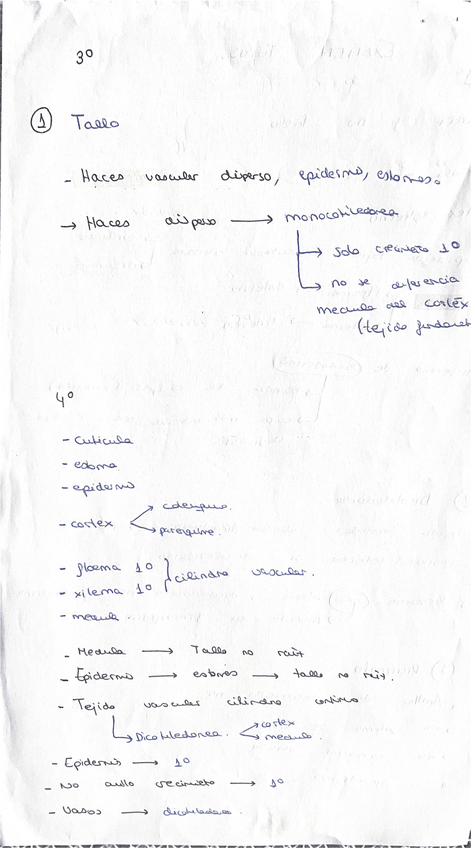 3º
① Tallo
- Haces vascular disperso, epidermis, estomas.
→ Haces disperso → monocotiledonea
→ solo crecimieto 1º
→ no se diferencia
medula del cortex
(tejido fundament
4º
- cuticula
- estoma
- epidermis
- cortex → colenquima.
→ parenquima.
- floema 1º
} cilindro vascular.
- xilema 1º
- medula
- Medula → Tallo no raíz
- Epidermis → estomas → tallo no raíz.
- Tejido vascular cilindro continuo
→ Dicotiledonea. cortex
medula.
- Epidermis → 1º
- No anillo crecimieto → 1º
- Vasos → dicotiledonea.